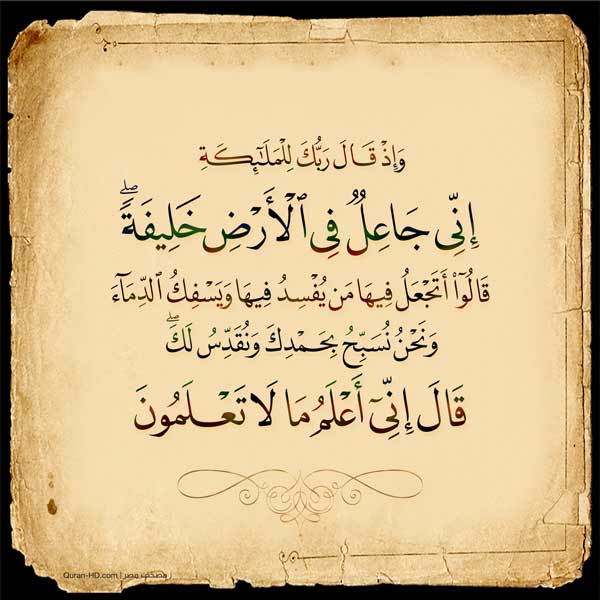 وَإِذْ قَالَ رَبُّكَ لِلْمَلَٰٓئِكَةِ
إِنِّى جَاعِلٌ فِى ٱلْأَرْضِ خَلِيفَةً ۖ
قَالُوٓا۟ أَتَجْعَلُ فِيهَا مَن يُفْسِدُ فِيهَا وَيَسْفِكُ ٱلدِّمَآءَ
وَنَحْنُ نُسَبِّحُ بِحَمْدِكَ وَنُقَدِّسُ لَكَ ۖ
قَالَ إِنِّىٓ أَعْلَمُ مَا لَا تَعْلَمُونَ
Quran-HD.com | مصحف مصر